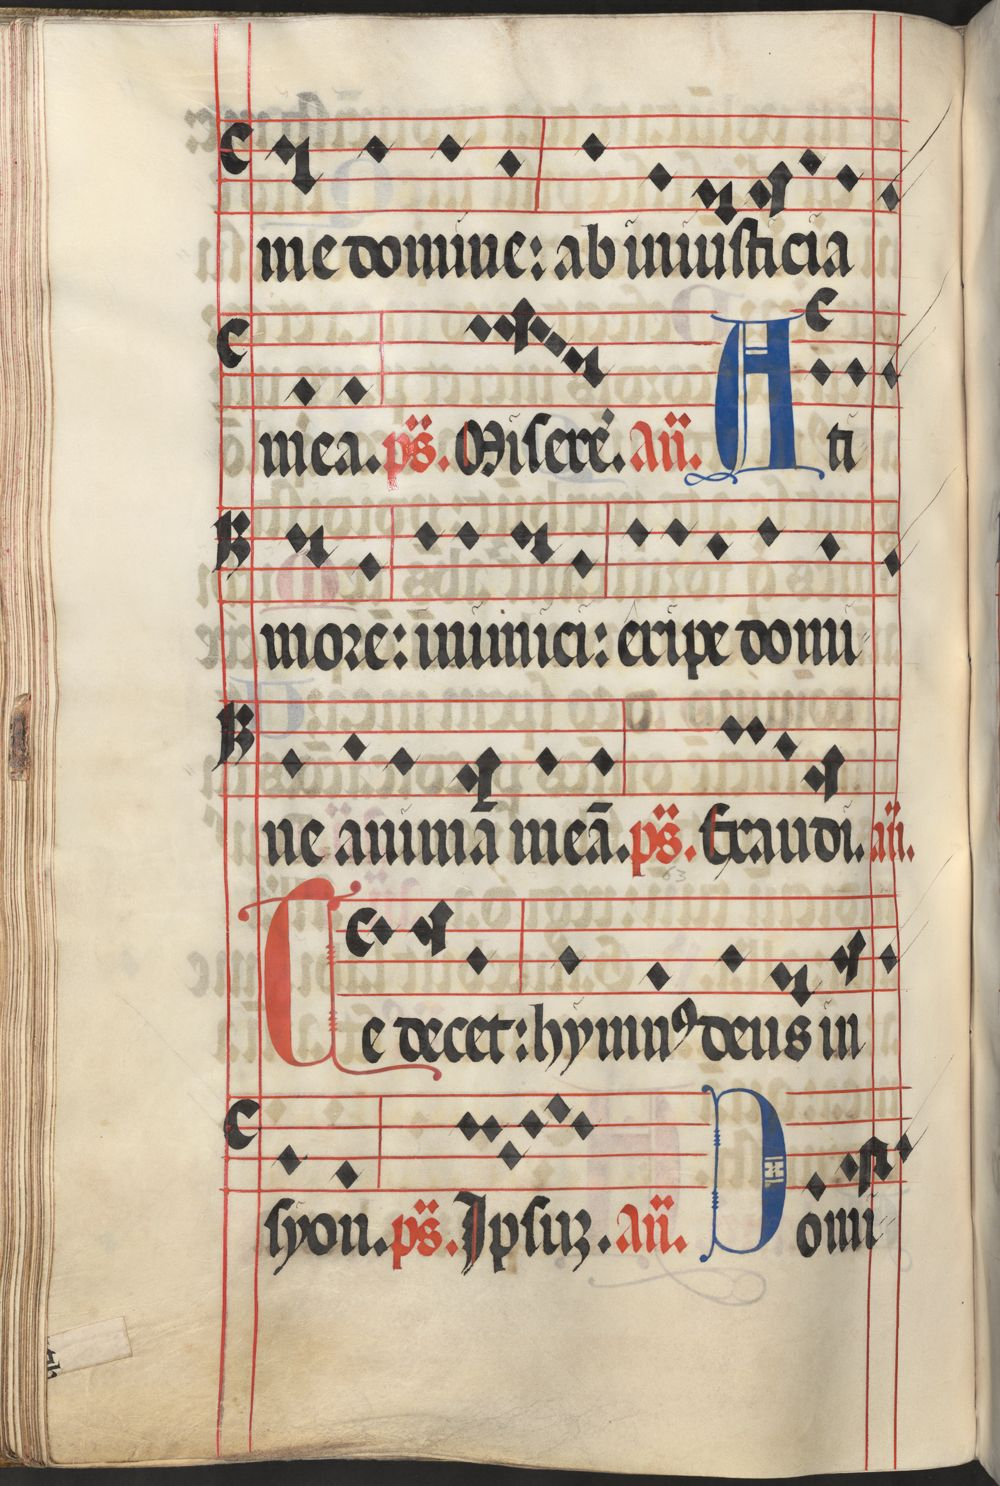 me domine: ab iniusticia
mea. ps. Misere. an. A ti
more: inimici: eripe domi
ne animā meā. ps. Exaudi. an.
Te decet: hymnꝰ deus in
syon. ps. Ipsuꝫ. an. Domi